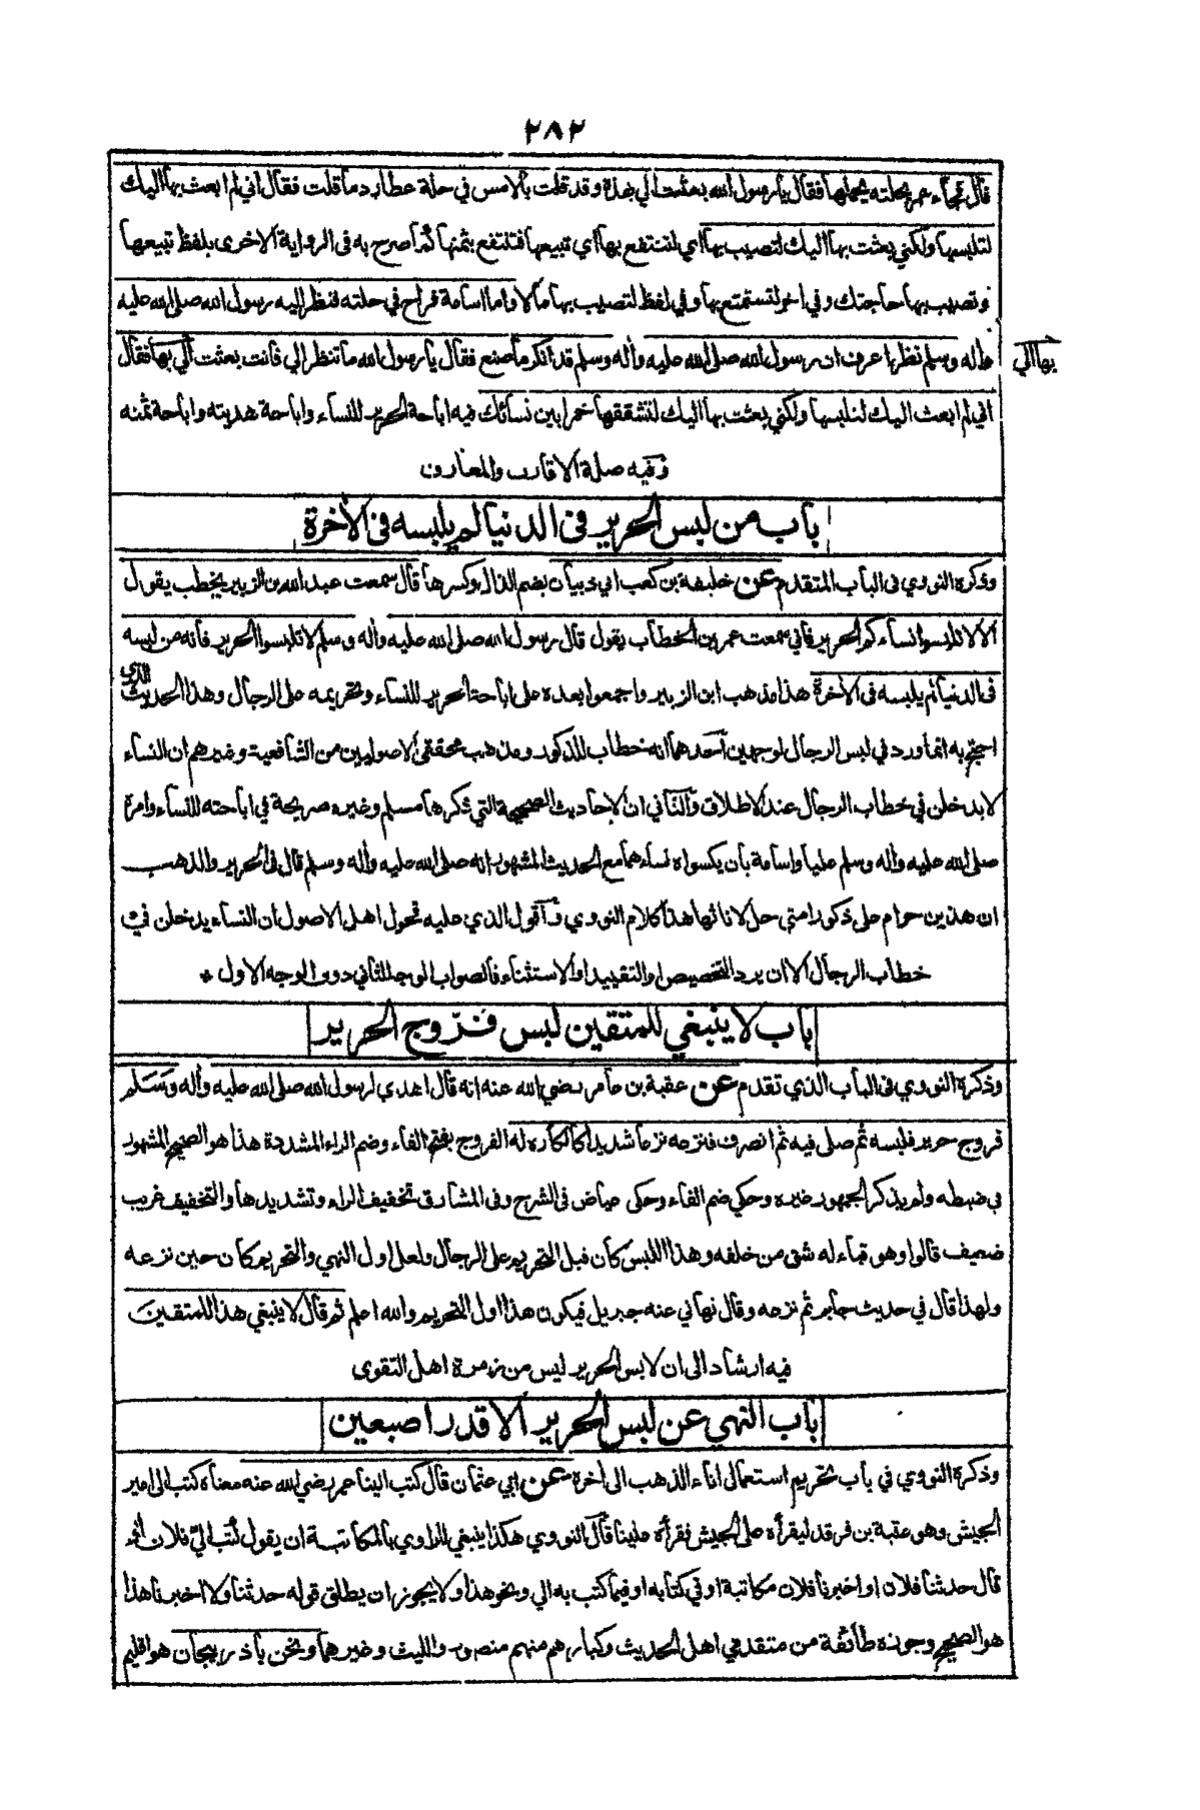 ٢٨٢
قال فجاء عمر بحلته يحملها فقال يا رسول الله بعثت الي بهذه وقد قلت بالامس في حلة عطارد ما قلت فقال اني لم ابعث بها اليك
لتلبسها ولكني بعثت بها اليك لتصيب بها اي لتنتفع بها اي تبيعها فتنتفع بثمنها كما صرح به في الرواية الاخرى بلفظ تبيعها
وتصيب بها حاجتك وفي اخر لتستمتع بها وفي لفظ لتصيب بها مالا واما اسامة فراح في حلته فنظر اليه رسول الله صلى الله عليه
وأله وسلم نظرا عرف ان رسول الله صلى الله عليه وأله وسلم قد انكر ما صنع فقال يا رسول الله ما تنظر الي فانت بعثت الي بها فقال
بها الي
اني لم ابعث اليك لتلبسها ولكني بعثت بها اليك لتشققها خمرا بين نسائك فيه اباحة الحرير للنساء واباحة هديته واباحة ثمنه
وفيه صلة الاقارب والمعارف
باب من لبس الحرير فى الدنيا لم يلبسه فى الأخرة
وذكره النووي فى الباب المتقدم عن خليفة بن كعب ابي ذبيان بضم الذال وكسرها قال سمعت عبد الله بن الزبير يخطب يقول
الا لا تلبسوا نساءكم الحرير فاني سمعت عمر بن الخطاب يقول قال رسول الله صلى الله عليه وأله وسلم لا تلبسوا الحرير فانه من لبسه
فى الدنيا لم يلبسه فى الأخرة هذا مذهب ابن الزبير واجمعوا بعده على اباحة الحرير للنساء وتحريمه على الرجال وهذا الحديث الذي
احتج به انما ورد في لبس الرجال لوجهين أحدهما انه خطاب للذكور ومذهب محققي الاصوليين من الشافعية وغيرهم ان النساء
لا يدخلن في خطاب الرجال عند الاطلاق والثاني ان الاحاديث الصحيحة التي ذكرها مسلم وغيره صريحة في اباحته للنساء وامره
صلى الله عليه وأله وسلم عليا واسامة بأن يكسواه نساءهما مع الحديث المشهور انه صلى الله عليه وأله وسلم قال فى الحرير والذهب
ان هذين حرام على ذكور امتي حل لاناثها هذا كلام النووي وأقول الذي عليه فحول اهل الاصول ان النساء يدخلن في
خطاب الرجال الا ان يرد التخصيص او التقييد او الاستثناء فالصواب الوجه الثاني دون الوجه الاول *
باب لا ينبغي للمتقين لبس فروج الحرير
وذكره النووي فى الباب الذي تقدم عن عقبة بن عامر رضي الله عنه انه قال اهدي لرسول الله صلى الله عليه وأله وسلم
فروج حرير فلبسه ثم صلى فيه ثم انصرف فنزعه نزعا شديدا كالكاره له الفروج بفتح الفاء وضم الراء المشددة هذا هو الصحيح المشهور
في ضبطه ولم يذكر الجمهور غيره وحكي ضم الفاء وحكى عياض فى الشرح وفى المشارق تخفيف الراء وتشديدها والتخفيف غريب
ضعيف قالوا وهو قباء له شق من خلفه وهذا اللبس كان قبل التحريم على الرجال ولعل اول النهي والتحريم كان حين نزعه
ولهذا قال في حديث جابر ثم نزعه وقال نهاني عنه جبريل فيكون هذا اول التحريم والله اعلم ثم قال لا ينبغي هذا للمتقين
فيه ارشاد الى ان لابس الحرير ليس من زمرة اهل التقوى
باب النهي عن لبس الحرير الا قدر اصبعين
وذكره النووي في باب تحريم استعمال اناء الذهب الى أخره عن ابي عثمان قال كتب الينا عمر رضي الله عنه معناه كتب الى امير
الجيش وهو عقبة بن فرقد ليقرأه على الجيش فقرأه علينا قال النووي هكذا ينبغي للراوي بالمكاتبة ان يقول كتب الي فلان
قال حدثنا فلان او اخبرنا فلان مكاتبة او في كتابه او فيما كتب به الي ونحو هذا ولا يجوز ان يطلق قوله حدثنا ولا اخبرنا هذا
هو الصحيح وجوزه طائفة من متقدمي اهل الحديث وكبارهم منهم منصور والليث وغيرهما ونحن باذربيجان هو اقليم